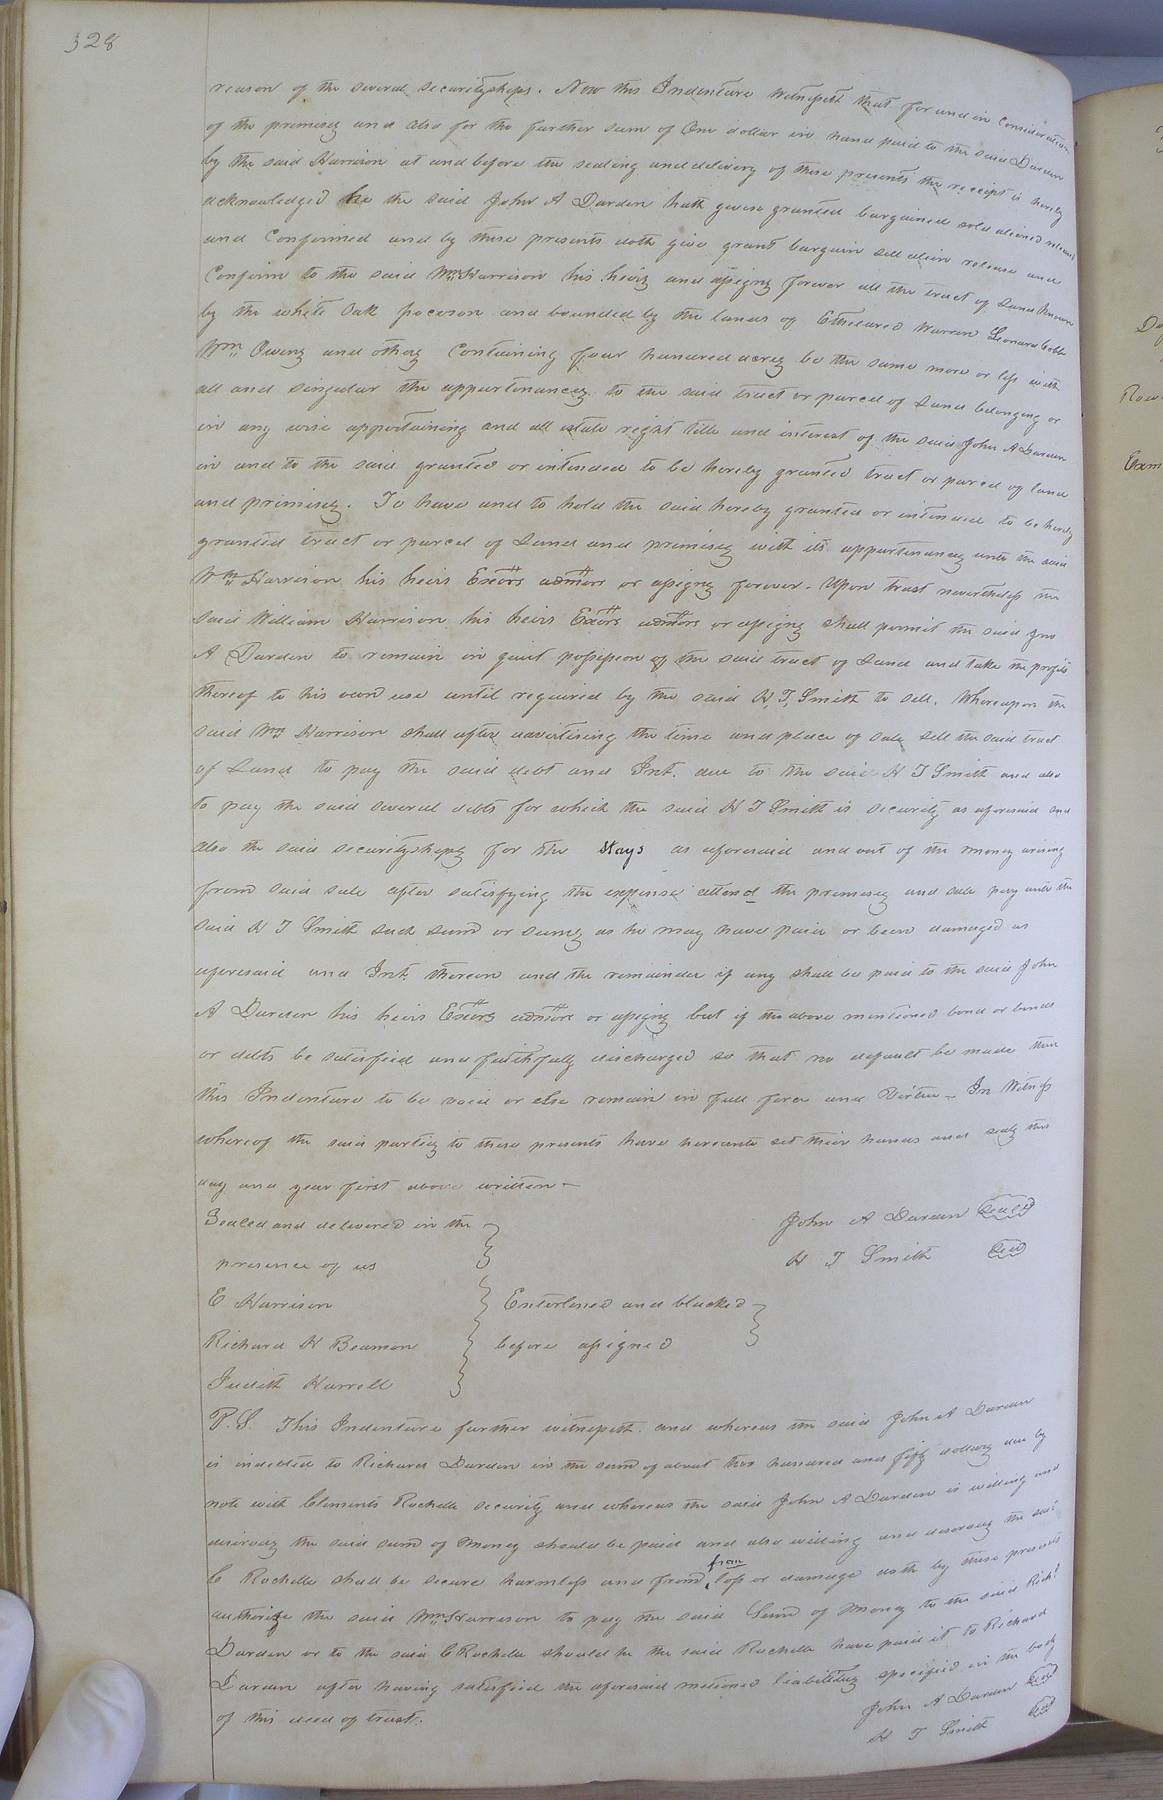 328
reason of the several securityships. Now this Indenture Witnesseth that for and in Consideration
of the premises and also for the further sum of One dollar in hand paid to the said Darden
by the said Harrison at and before the sealing and delivery of these presents the receipt is hereby
acknowledged he the said John A Darden hath given granted bargained sold aliened released
and Confirmed and by these presents doth give grant bargain sell alien release and
Confirm to the said Wm Harrison his heirs and assigns forever all the tract of Land known
by the white Oak pocoson and bounded by the lands of Etheldred Warren Leonard Cobb
Wm Owens and others Containing four hundred acres be the same more or less with
all and singular the appurtenances to the said tract or parcel of Land belonging or
in any wise appertaining and all estate right title and interest of the said John A Darden
in and to the said granted or intended to be hereby granted tract or parcel of land
and premises. To have and to hold the said hereby granted or intended to be hereby
granted tract or parcel of Land and premises with its appurtenances unto the said
Wm Harrison his heirs Exors admors or assigns forever - Upon trust nevertheless the
said William Harrison his heirs Exors admors or assigns shall permit the said Jno
A Darden to remain in quiet possession of the said tract of Land and take the profits
thereof to his own use until required by the said H, T, Smith to sell. Whereupon the
said Wm Harrison shall after advertising the time and place of sale sell the said tract
of Land to pay the said debt and Int. due to the said H T Smith and also
to pay the said several debts for which the said H T Smith is security as aforesaid and
also the said securityships for the stays as aforesaid and out of the money arising
from said sale after satisfying the expense attend the premises and sale pay unto the
said H T Smith such sum or sums as he may have paid or been damaged as
aforesaid and Int. thereon and the remainder if any shall be paid to the said John
A Darden his heirs Exors admors or assigns but if the above mentioned bond or bonds
or debts be satisfied and faithfully discharged so that no default be made then
this Indenture to be void or else remain in full force and Virtue - In Witness
whereof the said parties to these presents have hereunto set their hands and seals the
day and year first above written -
Sealed and delivered in the
John A Darden Seal
presence of us
H T Smith Seal
E Harrison
Enterlined and blacked
Richard H Beamon
before assigned
Judith Harrell
P.S. This Indenture further witnesseth and whereas the said John A Darden
is indebted to Richard Darden in the sum of about two hundred and fifty dollars due by
note with Clements Rochelle security and whereas the said John A Darden is willing and
desirous the said sum of money should be paid and also willing and desirous the said
C Rochelle shall be secure harmless and from from loss or damage doth by these presents
authorize the said Wm Harrison to pay the said Sum of money to the said Richd
Darden or to the said C Rochelle should he the said Rochelle have paid it to Richard
Darden after having satisfied the aforesaid mentioned liabilities specified in the body
of this deed of trust.
John A Darden Seal
H T Smith Seal